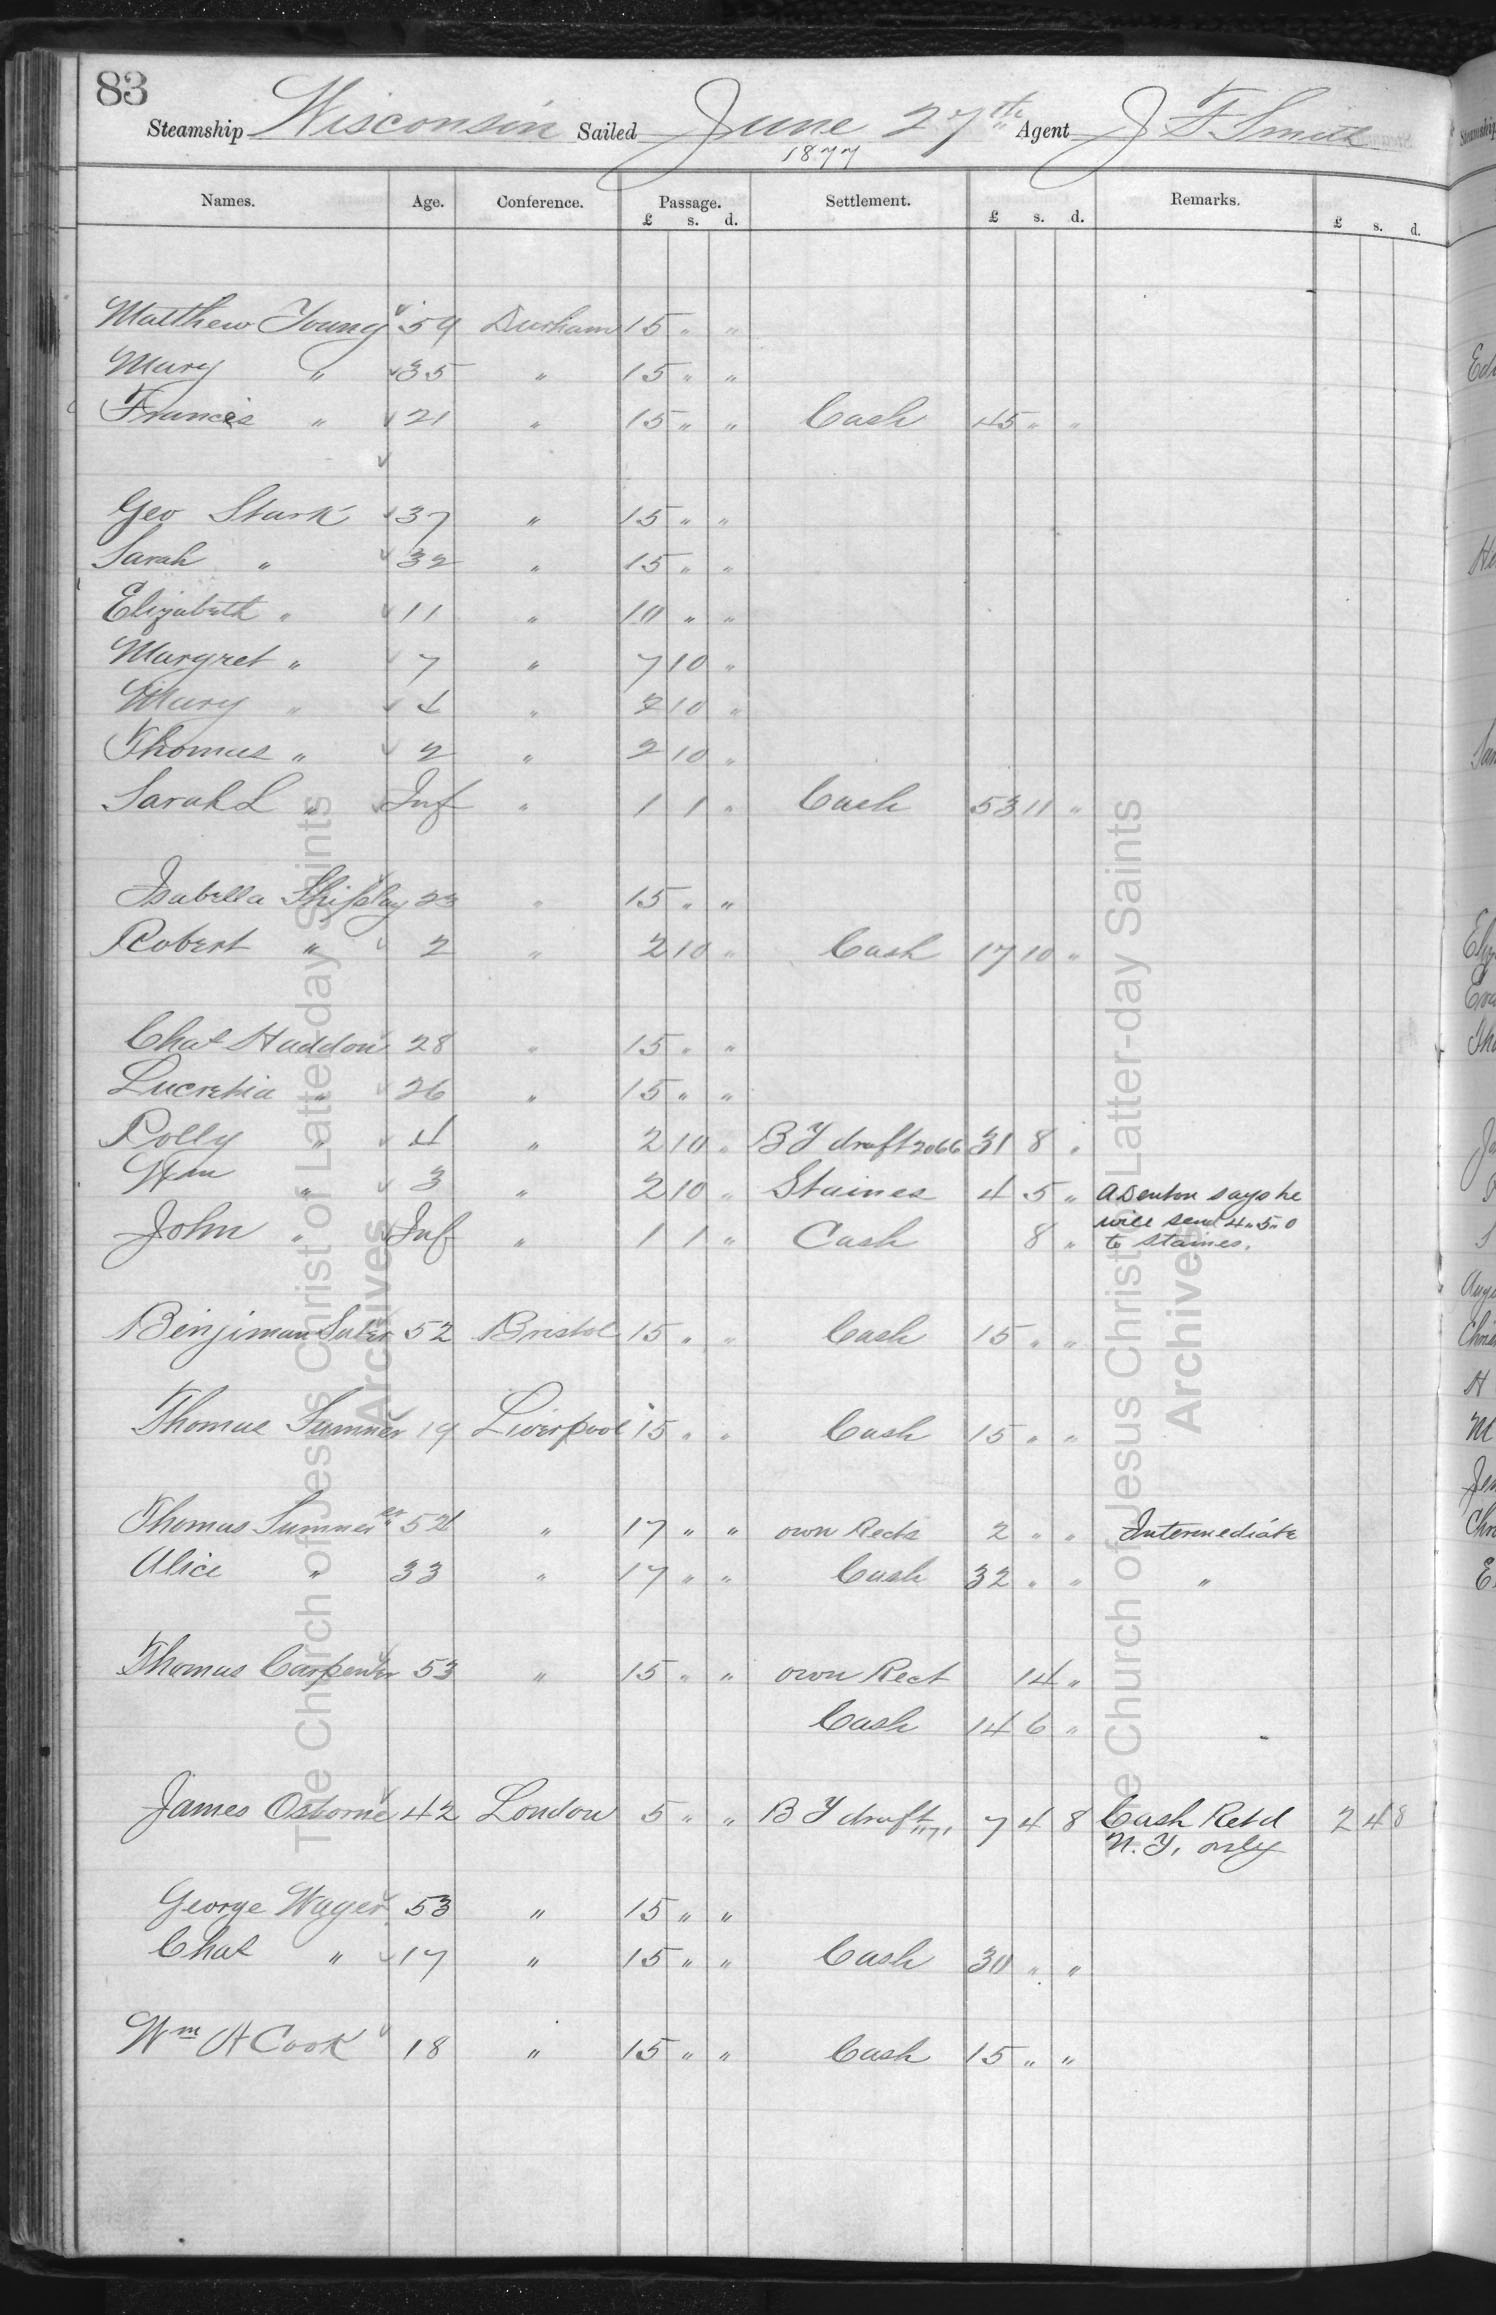 83
Steamship Wisconsin Sailed June 27th Agent J F Smith
1877
Names. Age. Conference. Passage. Settlement. Remarks.
£ s. d. £ s. d. £ s. d.
Matthew Young 59 Durham 15 " "
Mary " 35 " 15 " "
Francis " 21 " 15 " " Cash 45 " "
Geo Stark 37 " 15 " "
Sarah " 32 " 15 " "
Elizabeth " 11 " 10 " "
Margret " 7 " 7 10 "
Mary " 4 " 2 10 "
Thomas " 2 " 2 10 "
Sarah L " Inf " 1 1 " Cash 53 11 "
Isabella Shipley 23 " 15 " "
Robert " 2 " 2 10 " Cash 17 10 "
Chas Haddon 28 " 15 " "
Lucretia " 26 " 15 " "
Polly " 4 " 2 10 " B Y draft 2066 31 8 "
Wm " 3 " 2 10 " Staines 4 5 " A Denton says he
will send 4 " 5 " 0
John " Inf " 1 1 " Cash 8 " to Staines.
Binjiman Suter 52 Bristol 15 " " Cash 15 " "
Thomas Sumner 19 Liverpool 15 " " Cash 15 " "
Thomas Sumner 52 " 17 " " own Rects 2 " " Intermediate
Alice " 33 " 17 " " Cash 32 " " "
Thomas Carpenter 53 " 15 " " own Rect 14 "
Cash 14 6 "
James Osborne 42 London 5 " " B Y draft 7 4 8 Cash Retd 2 4 8
N. Y. only
George Wager 53 " 15 " "
Chas " 17 " 15 " " Cash 30 " "
Wm H Cook 18 " 15 " " Cash 15 " "
The Church of Jesus Christ of Latter-day Saints
Archives
The Church of Jesus Christ of Latter-day Saints
Archives